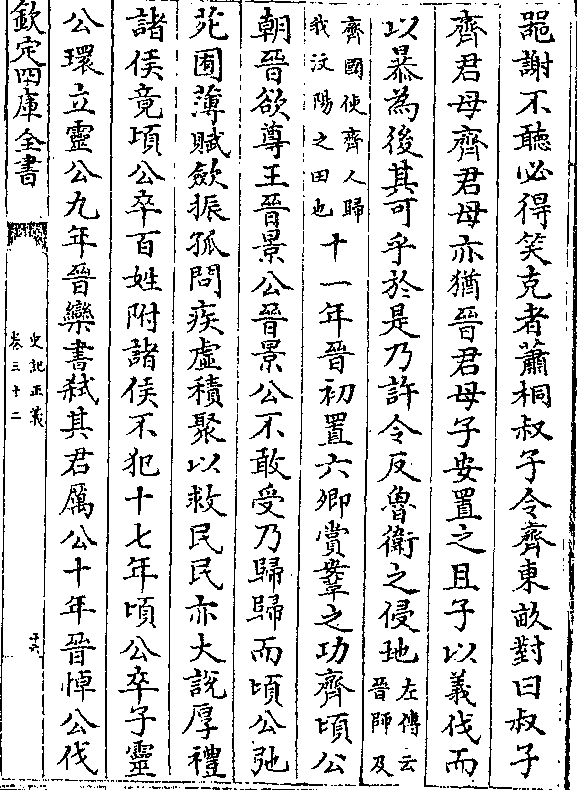 噐謝不聽必得笑克者蕭桐叔子令齊東畝對曰叔子
齊君母齊君母亦猶晉君母子安置之且子以義伐而
以暴為後其可乎於是乃許令反魯衛之侵地左傳云
晉師及
齊國使齊人歸
我汶陽之田也十一年晉初置六卿賞鞌之功齊頃公
朝晉欲尊王晉景公晉景公不敢受乃歸歸而頃公弛
苑囿薄賦歛振孤問疾虛積聚以救民民亦大說厚禮
諸侯竟頃公卒百姓附諸侯不犯十七年頃公卒子靈
公環立靈公九年晉欒書弑其君厲公十年晉悼公伐
欽定四庫全書
史記正義
卷三十二
十六